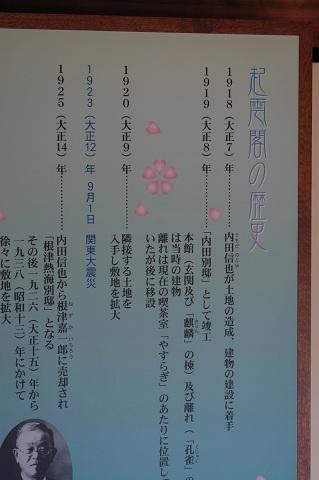 起雲閣の歴史
1918（大正7）年…………内田信也が土地の造成、建物の建設に着手
1919（大正8）年…………「内田別邸」として竣工
本館（玄関及び「麒麟」の棟）及び離れ（「孔雀」の
は当時の建物
離れは現在の喫茶室「やすらぎ」のあたりに位置し
いたが後に移設
1920（大正9）年…………隣接する土地を
入手し敷地を拡大
1923（大正12）年 9月1日 関東大震災
1925（大正14）年…………内田信也から根津嘉一郎に売却され
「根津熱海別邸」となる
その後一九二六（大正十五）年から
一九三八（昭和十三）年にかけて
徐々に敷地を拡大